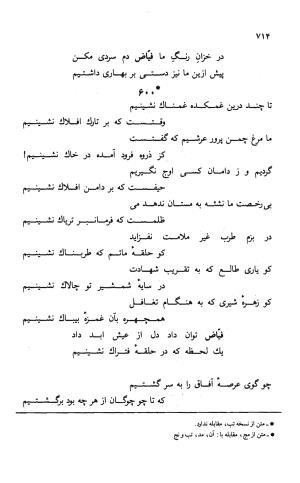 ۷۱۴
در خزانِ رنگِ ما فیّاض دم سردی مکن
پیش ازین ما نیز دستی بر بهاری داشتیم
*۶۰۰
تا چند درین غمکده غمناك نشینیم
وقتست که بر تارك افلاك نشینیم
ما مرغ چمن پرور عرشیم که گفتست
کز ذروه فرود آمده در خاك نشینیم!
گردیم و ز دامان کسی اوج نگیریم
حیفست که بر دامن افلاك نشینیم
بی‌رخصت ما نشئه به مستان ندهد می
ظلمست که فرمانبر تریاك نشینیم
در بزم طرب غیر ملامت نفزاید
کو حلقهٔ ماتم که طربناك نشینیم
کو یاری طالع که به تقریب شهادت
در سایهٔ شمشیر تو چالاك نشینیم
کو زهرهٔ شیری که به هنگام تغافل
همچهره بآن غمزهٔ بیباك نشینیم
فیّاض توان داد دل از عیش ابد داد
یك لحظه که در حلقهٔ فتراك نشینیم
چو گوی عرصهٔ آفاق را به سر گشتیم
که تا چو چوگان از هر چه بود برگشتیم
* ـ متن از نسخه تب، مقابله ندارد.
* ـ متن از مج، مقابله با: آن، مد، تب و نج